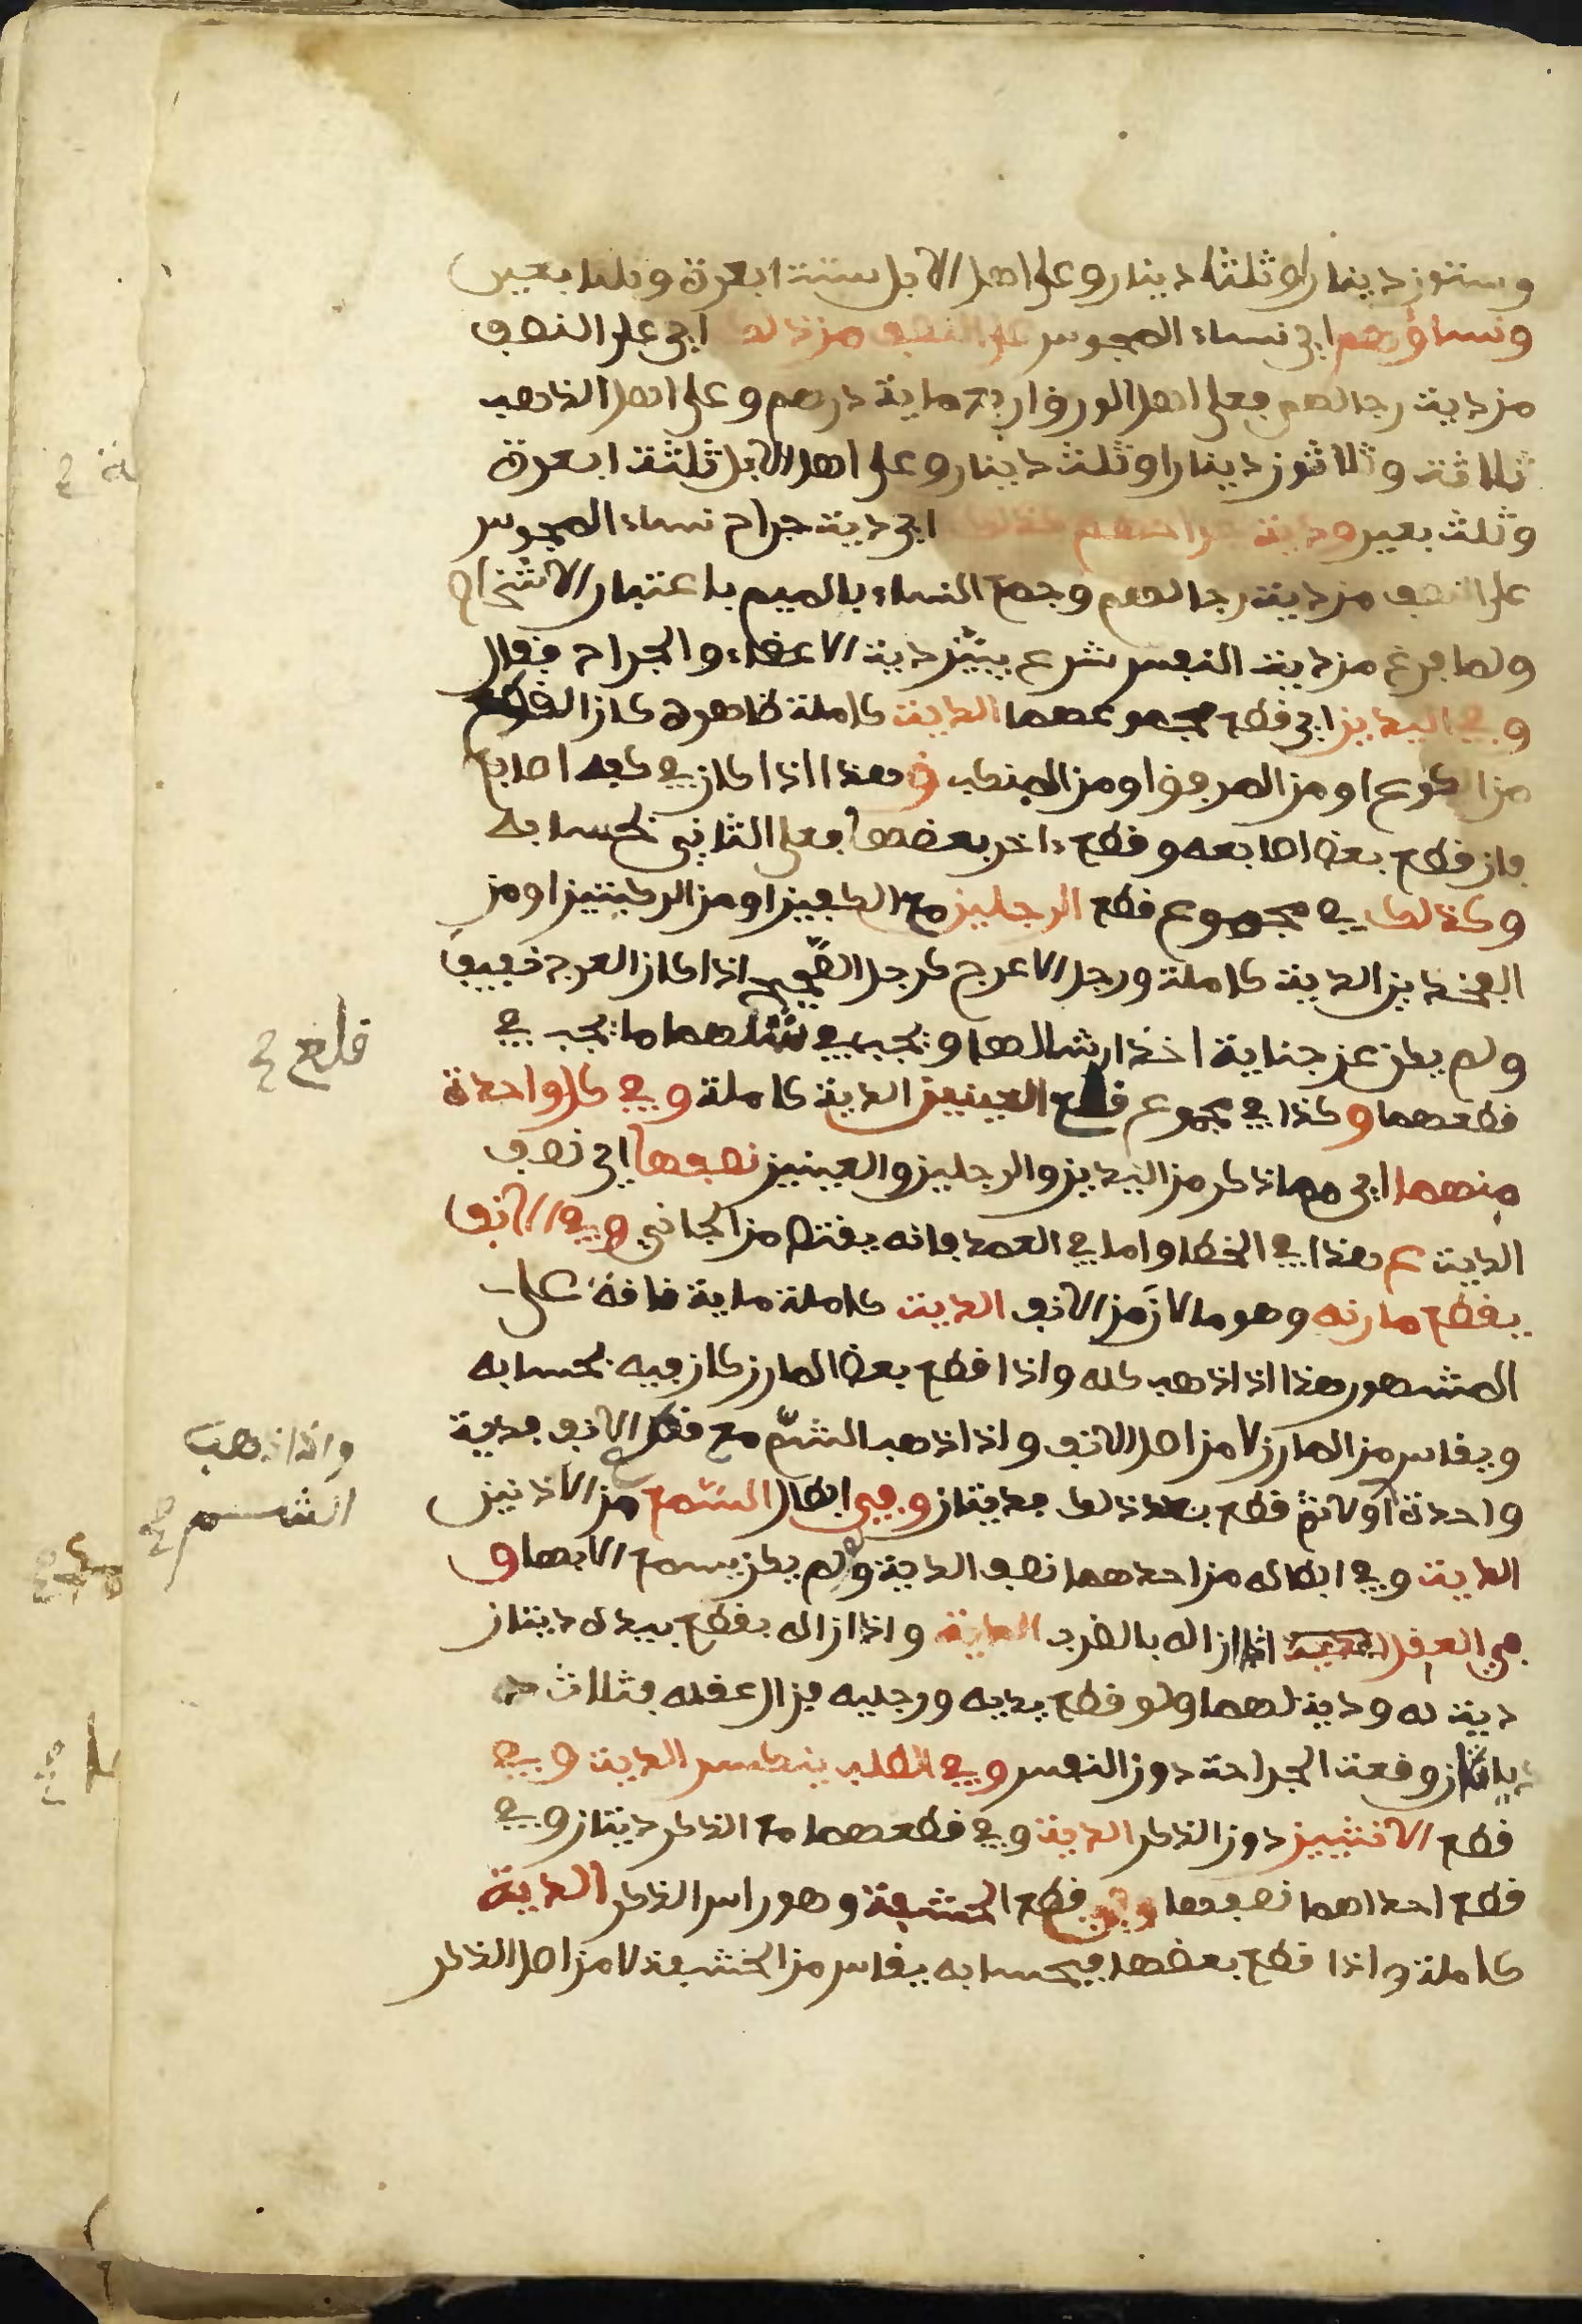 وستون دينارا وثلثا دينار وعلى اهل الابل ستة ابعرة وثلثا بعير
ونساؤهم اي نساء المجوس على النصف من ذلك اي على النصف
من دية رجالهم فعلى اهل الورق اربع ماية درهم وعلى اهل الذهب
ثلاثة وثلاثون دينارا وثلث دينار وعلى اهل الابل ثلثة ابعرة
وثلث بعير ودية جراحهم كذلك اي دية جراح نساء المجوس
على النصف من دية رجالهم وجمع النساء بالميم باعتبار الاشخاص
ولما فرغ من دية النفس شرع يبيّن دية الاعضاء والجراح فقال
وفي اليدين اي قطع مجموعهما الدية كاملة ظاهره كان القطع
من الكوع او من المرفق او من المنكب وهذا اذا كان في كفه اصابع
فان قطع بعض اصابعه وقطع ءاخر بعضها فعلى الثاني بحسابه
وكذلك في مجموع قطع الرجلين مع الكعبين او من الركبتين او من
الفخذين الدية كاملة ورجل الاعرج كرجل الصّحيح اذا كان العرج خفيف
ولم يكن عن جناية اخذ ارشا لها ويجب في شللهما ما يجب في
قطعهما وكذا في مجموع قلع العينين الدية كاملة وفي كل واحدة
منهما اي مما ذكر من اليدين والرجلين والعينين نصفها اي نصف
الدية ع هذا في الخطا واما في العمد فانه يقتص من الجاني وفي الانف
بقطع مارنه وهو ما لان من الانف الدية كاملة ماية ناقة على
المشهور هذا اذا ذهب كله واذا قطع بعض المارن كان فيه بحسابه
ويقاس من المارن لا من اصل الانف واذا ذهب الشمّ مع قطع الانف فدية
واحدة اولا ثم قطع بعد ذلك فديتان وفي ابطال السّمع من الاذنين
الدية وفي ابطاله من احدهما نصف الدية ولو لم يكن يسمع الا بها و
في العقل اذا ازاله بالضرب الدية واذا ازاله بقطع يده ديتان
دية له ودية لهما ولو قطع يديه ورجليه فزال عقله فثلاث
ديات ان وقعت الجراحة دون النفس وفي الصلب ينكسر الدية وفي
قطع الانثيين دون الذكر الدية وفي قطعهما مع الذكر ديتان وفي
قطع احداهما نصفها وفي قطع الحشفة وهو راس الذكر الدية
كاملة واذا قطع بعضها فبحسابه يقاس من الحشفة لا من اصل الذكر
قلع خ
واذا ذهب
الشم خ